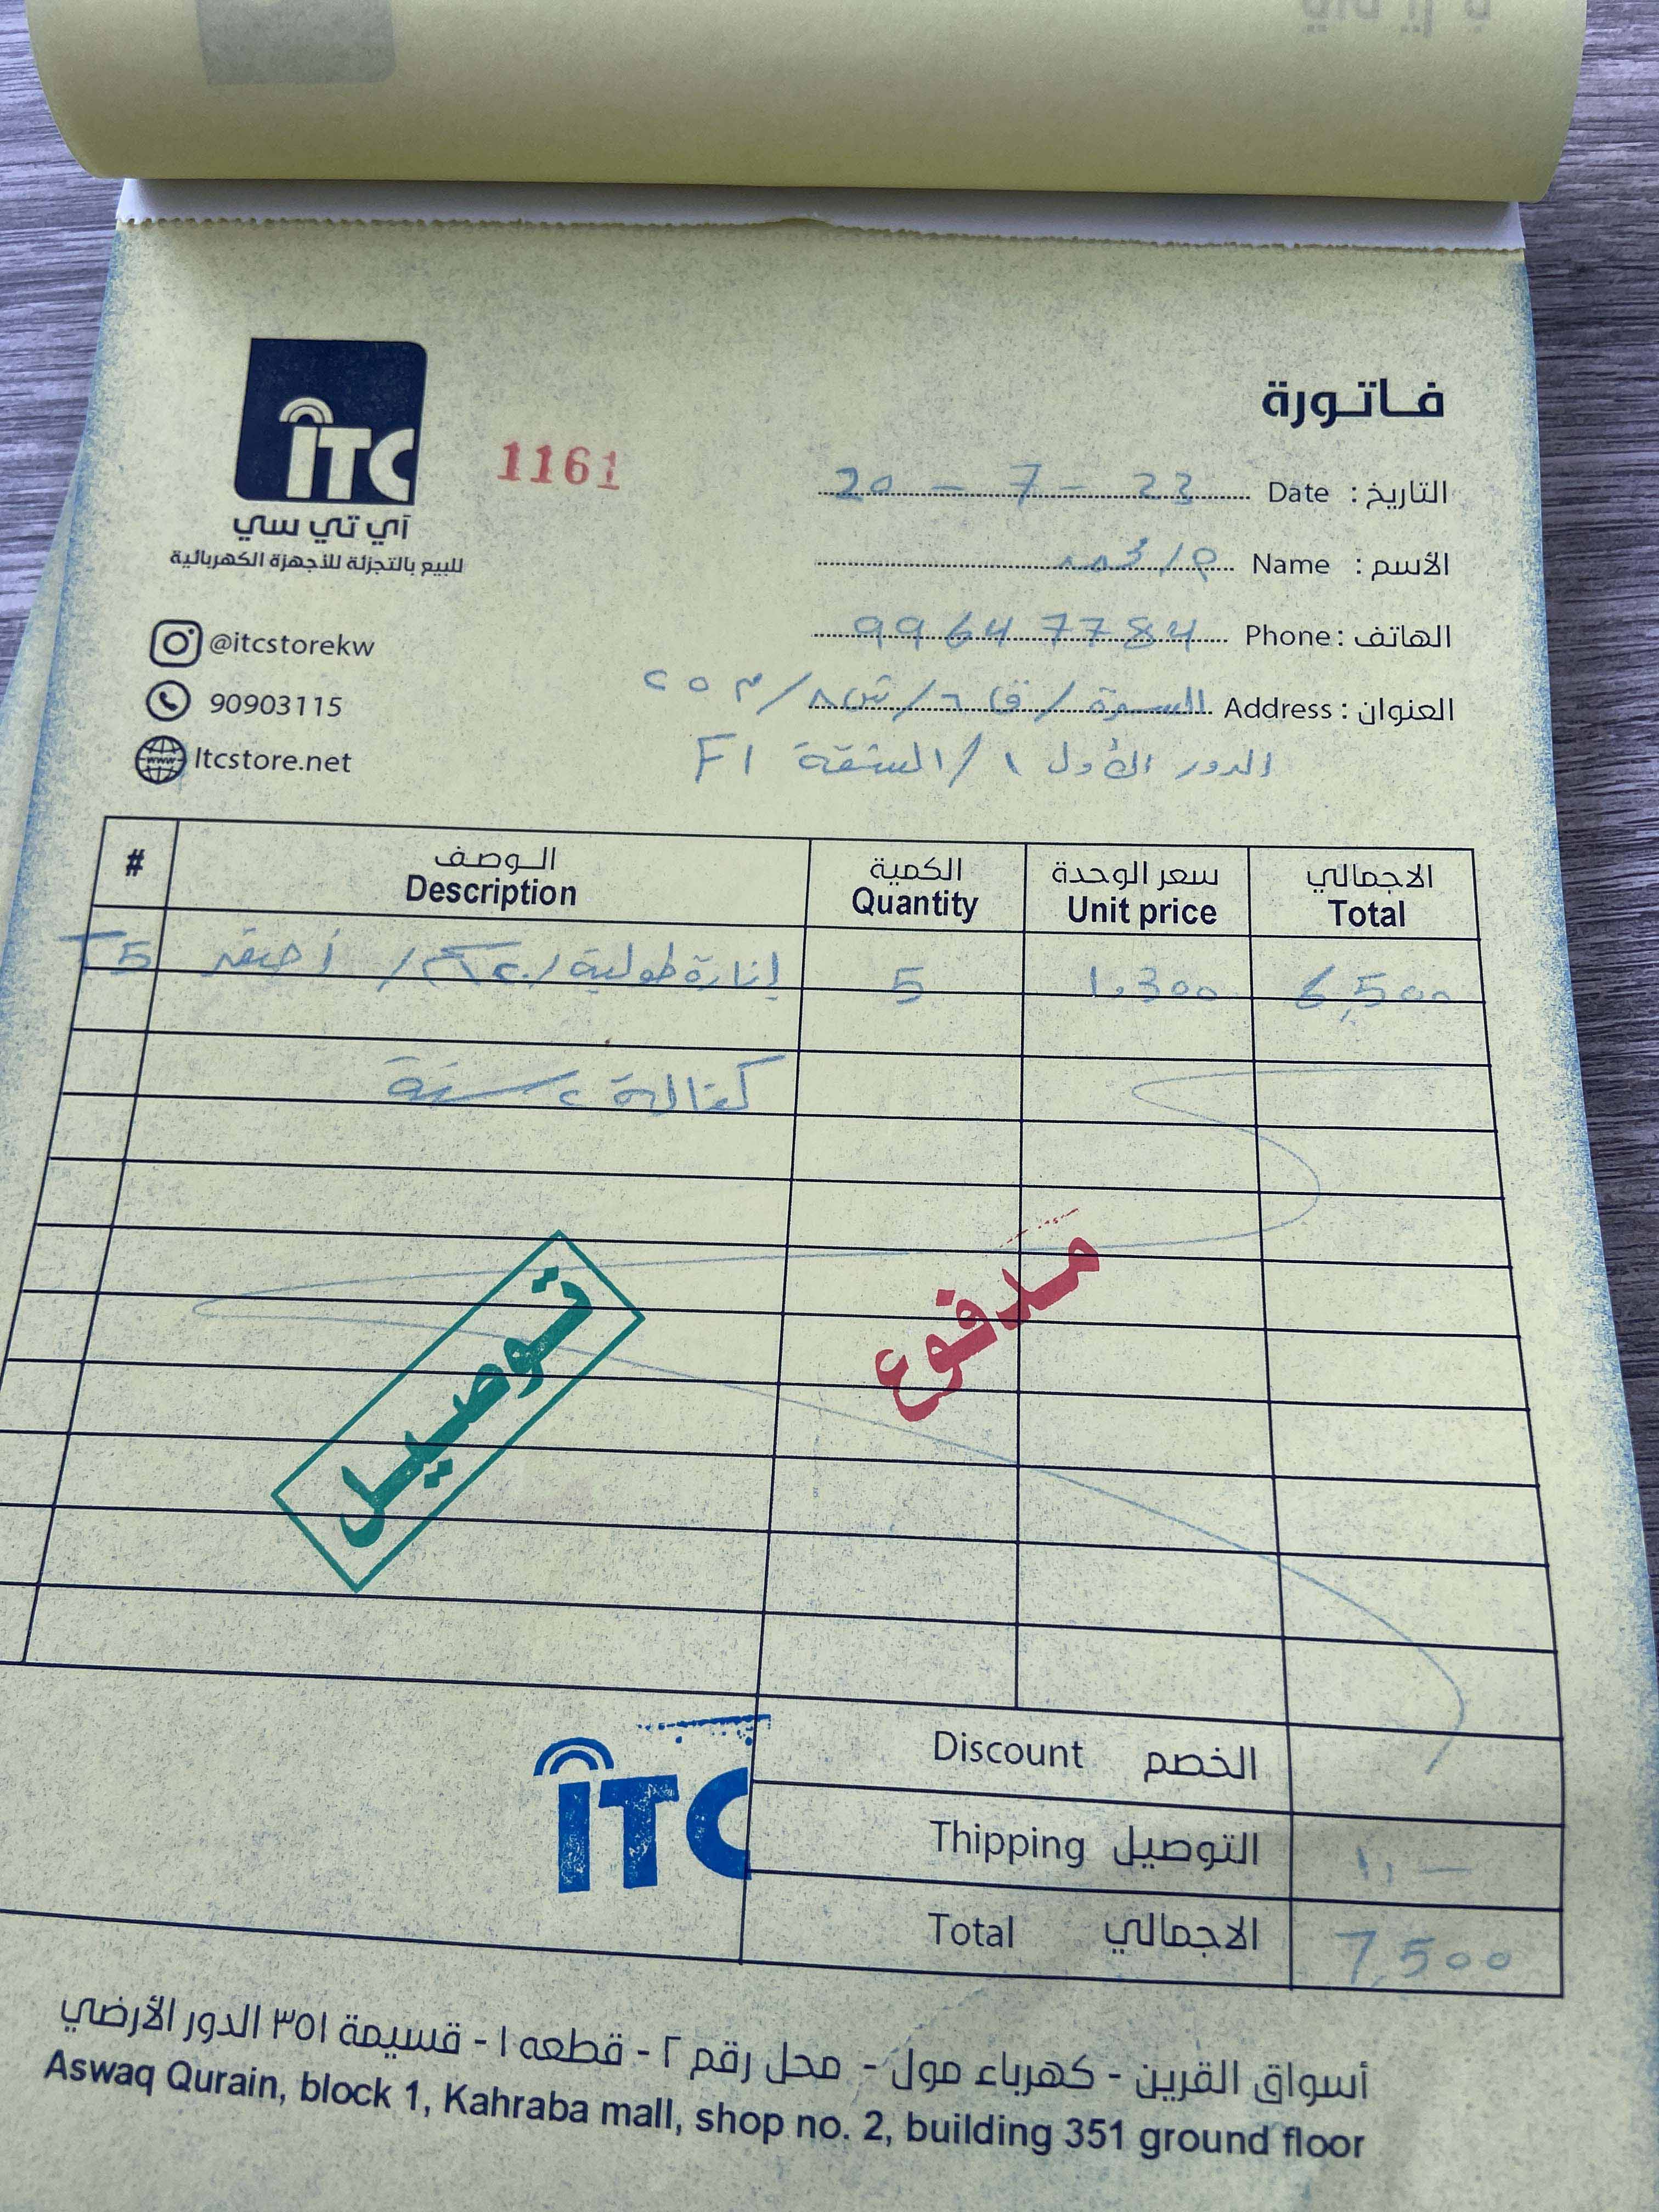 فاتورة
ITC
آي تي سي
للبيع بالتجزئة للأجهزة الكهربائية
1161
التاريخ : Date 20 - 7 - 23
الأسم : Name م/محمد
الهاتف : Phone 99647784
العنوان : Address السرة / ق ٦ / ش ٨ / م ٢٥
الدور الأول ١ / الشقة F1
@itcstorekw
90903115
www
Itcstore.net
# الوصف الكمية سعر الوحدة الاجمالي
Description Quantity Unit price Total
T5 إنارة طولية / أصفر 5 1.300 6,500
كفالة ٢ سنة
توصيل
مدفوع
ITC
Discount الخصم
Thipping التوصيل 1,-
Total الاجمالي 7,500
أسواق القرين - كهرباء مول - محل رقم ٢ - قطعه ١ - قسيمة ٣٥١ الدور الأرضي
Aswaq Qurain, block 1, Kahraba mall, shop no. 2, building 351 ground floor